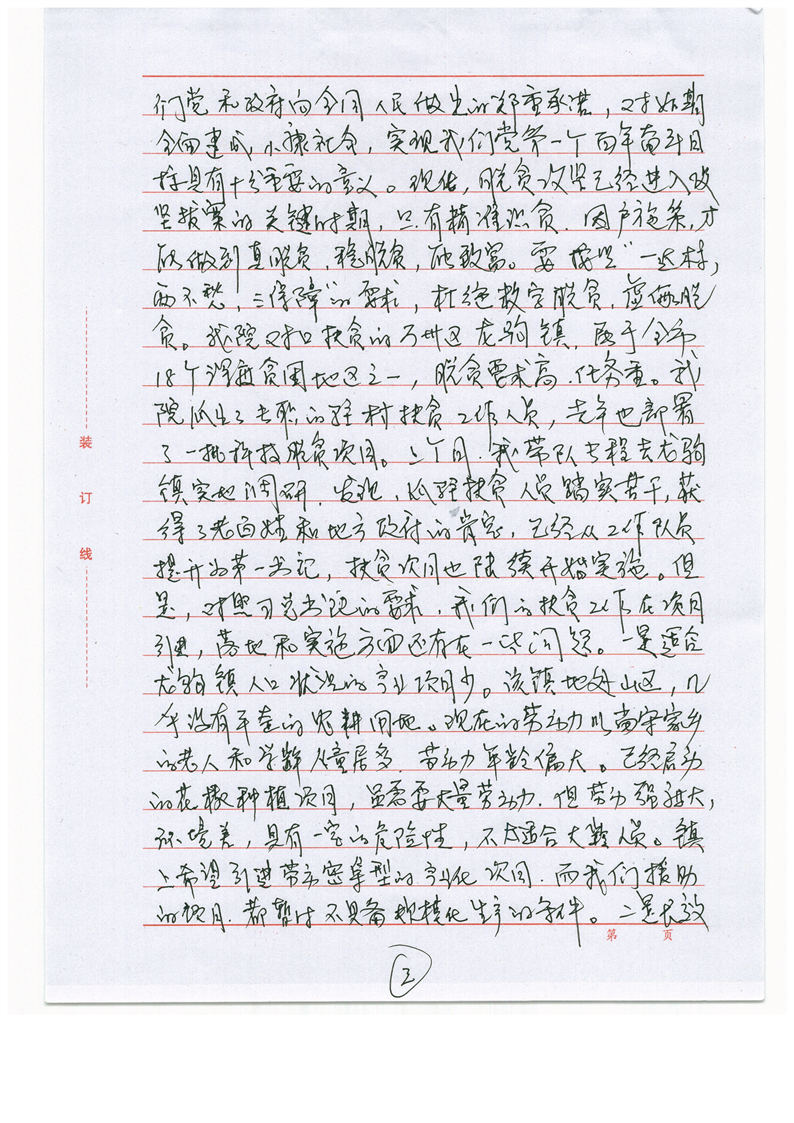 们党和政府向全国人民做出的郑重承诺，对如期
全面建成小康社会，实现我们党第一个百年奋斗目
标具有十分重要的意义。现在，脱贫攻坚已经进入攻
坚拔寨的关键时期，只有精准识贫，因户施策，才
能做到真脱贫，稳脱贫，能致富。要按照"一达标，
两不愁，三保障"的要求，杜绝数字脱贫，虚假脱
贫。我院对口扶贫的万州区龙驹镇，属于全市
18个深度贫困地区之一，脱贫要求高，任务重。我
院派出了专职的驻村扶贫工作人员，去年也部署
了一批科技脱贫项目。上个月，我带队专程去龙驹
镇实地调研，发现，派驻扶贫人员踏实苦干，获
得了老百姓和地方政府的肯定，已经从工作队员
提升为第一书记，扶贫项目也陆续开始实施。但
是，对照习总书记的要求，我们的扶贫工作在项目
引进，落地和实施方面还存在一些问题。一是适合
龙驹镇人口状况的产业项目少。该镇地处山区，几
乎没有平整的农耕用地。现在的劳动力以留守家乡
的老人和学龄儿童居多，劳动力年龄偏大。已经启动
的花椒种植项目，虽需要大量劳动力，但劳动强度大，
环境差，具有一定的危险性，不太适合大龄人员。镇
上希望引进劳动密集型的产业化项目，而我们援助
的项目，都暂时不具备规模化生产的条件。二是长效
装
订
线
第 页
2